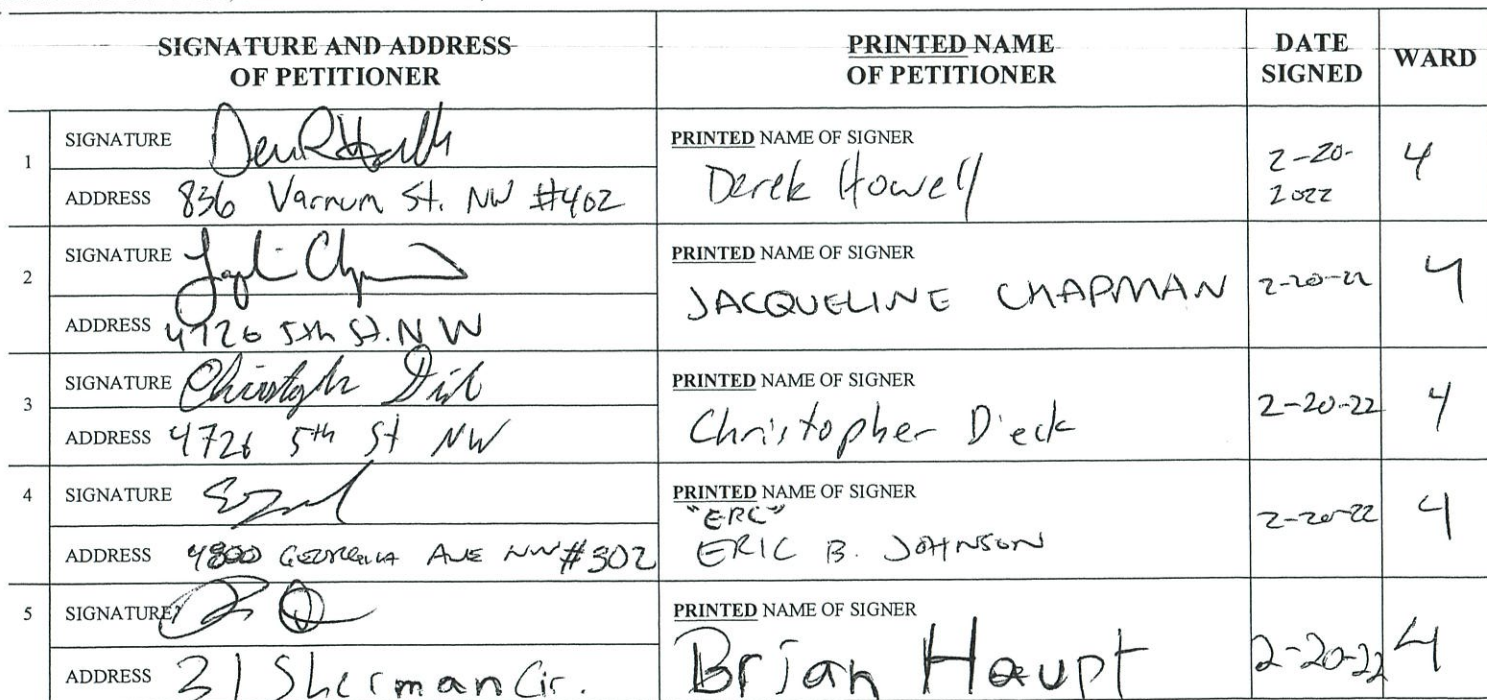 SIGNATURE AND ADDRESS OF PETITIONER
PRINTED NAME OF PETITIONER
DATE SIGNED
WARD
1
SIGNATURE
ADDRESS 836 Varnum St. NW #402
PRINTED NAME OF SIGNER
Derek Howell
2-20-
2022
4
2
SIGNATURE
ADDRESS 4726 5th St. NW
PRINTED NAME OF SIGNER
JACQUELINE CHAPMAN
2-20-22
4
3
SIGNATURE
ADDRESS 4726 5th St NW
PRINTED NAME OF SIGNER
Christopher Dieck
2-20-22
4
4
SIGNATURE
ADDRESS 4800 GEORGIA AVE NW #302
PRINTED NAME OF SIGNER
"ERC"
ERIC B. JOHNSON
2-20-22
4
5
SIGNATURE
ADDRESS 31 Sherman Cir.
PRINTED NAME OF SIGNER
Brian Haupt
2-20-22
4